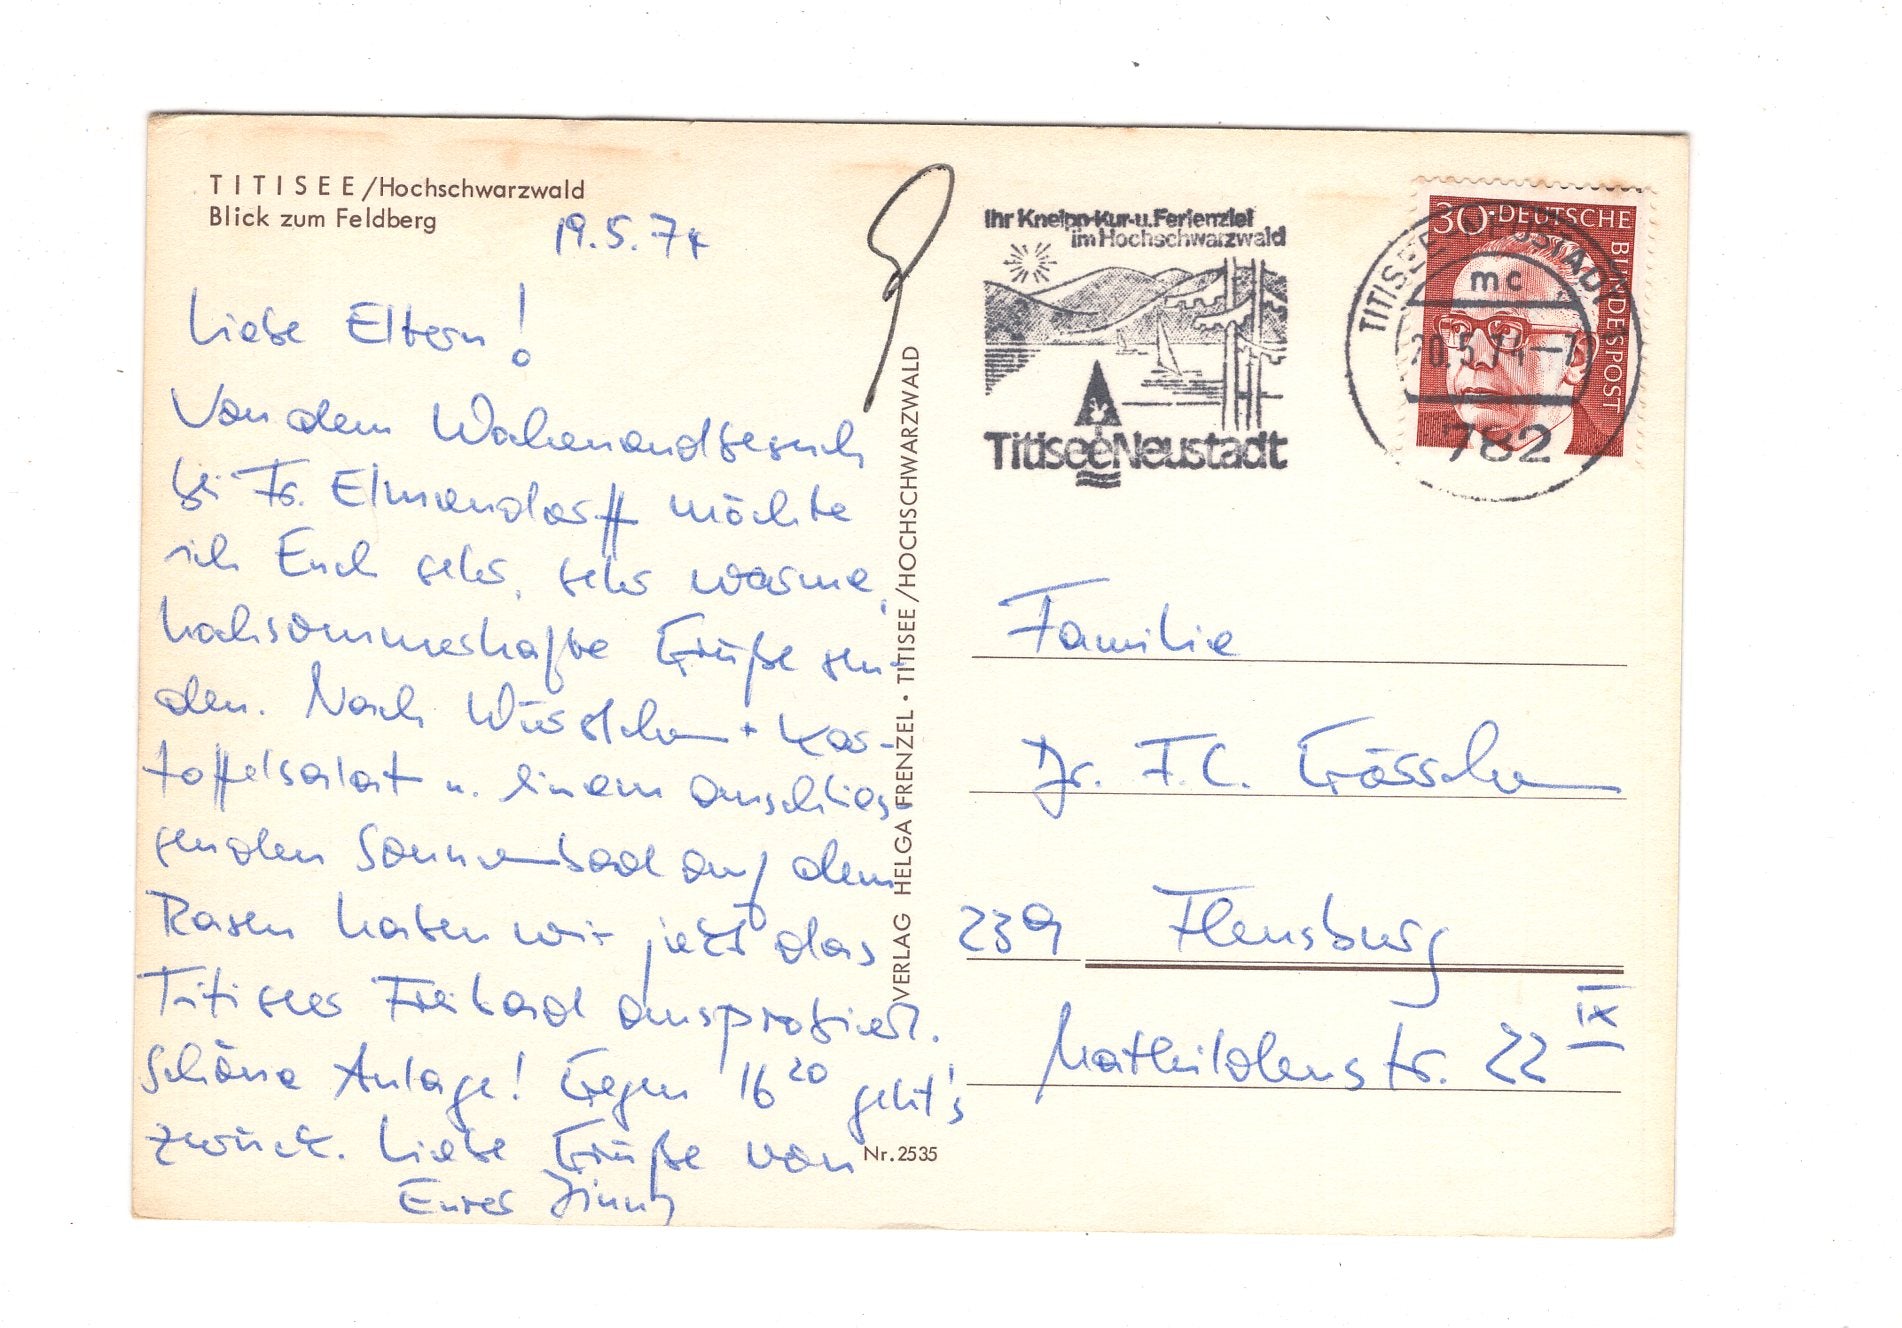 TITISEE/Hochschwarzwald
Blick zum Feldberg
19.5.74
Liebe Eltern!
Von dem Wochenendbesuch
bei Fr. Elmendorff möchte
ich Euch sehr, sehr warme,
hochsommerhafte Grüße sen-
den. Nach Würstchen + Kar-
toffelsalat u. einem anschlies-
senden Sonnenbad auf dem
Rasen haben wir jetzt das
Titiseer Freibad ausprobiert.
Schöne Anlage! Gegen 16 20 geht's
zurück. Liebe Grüße von
Eurer
VERLAG HELGA FRENZEL · TITISEE/HOCHSCHWARZWALD
Nr. 2535
Ihr Kneipp-Kur-u. Ferienziel
im Hochschwarzwald
Titisee Neustadt
30 DEUTSCHE BUNDESPOST
TITISEE-NEUSTADT
mc
20.5.74
782
Familie
Dr. F.C.
239 Flensburg
Mathildenstr. 22 IX